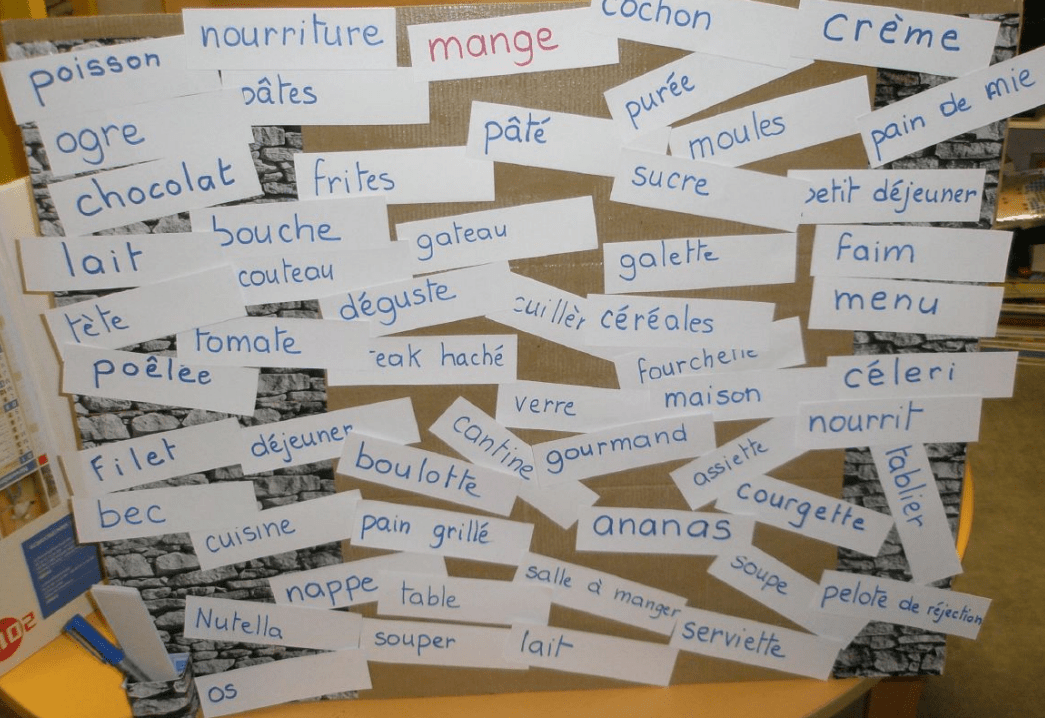 cochon
nourriture
mange
crème
poisson
pâtes
purée
pain de mie
ogre
pâté
moules
chocolat
frites
sucre
petit déjeuner
bouche
gateau
lait
couteau
galette
faim
tète
déguste
cuillèr
céréales
menu
tomate
eak haché
fourchette
poêlèe
verre
maison
céleri
nourrit
filet
déjeuner
cantine
gourmand
assiette
tablier
boulotte
courgette
bec
cuisine
pain grillé
ananas
soupe
nappe
table
salle à manger
pelote de réjection
Nutella
souper
lait
serviette
os
102